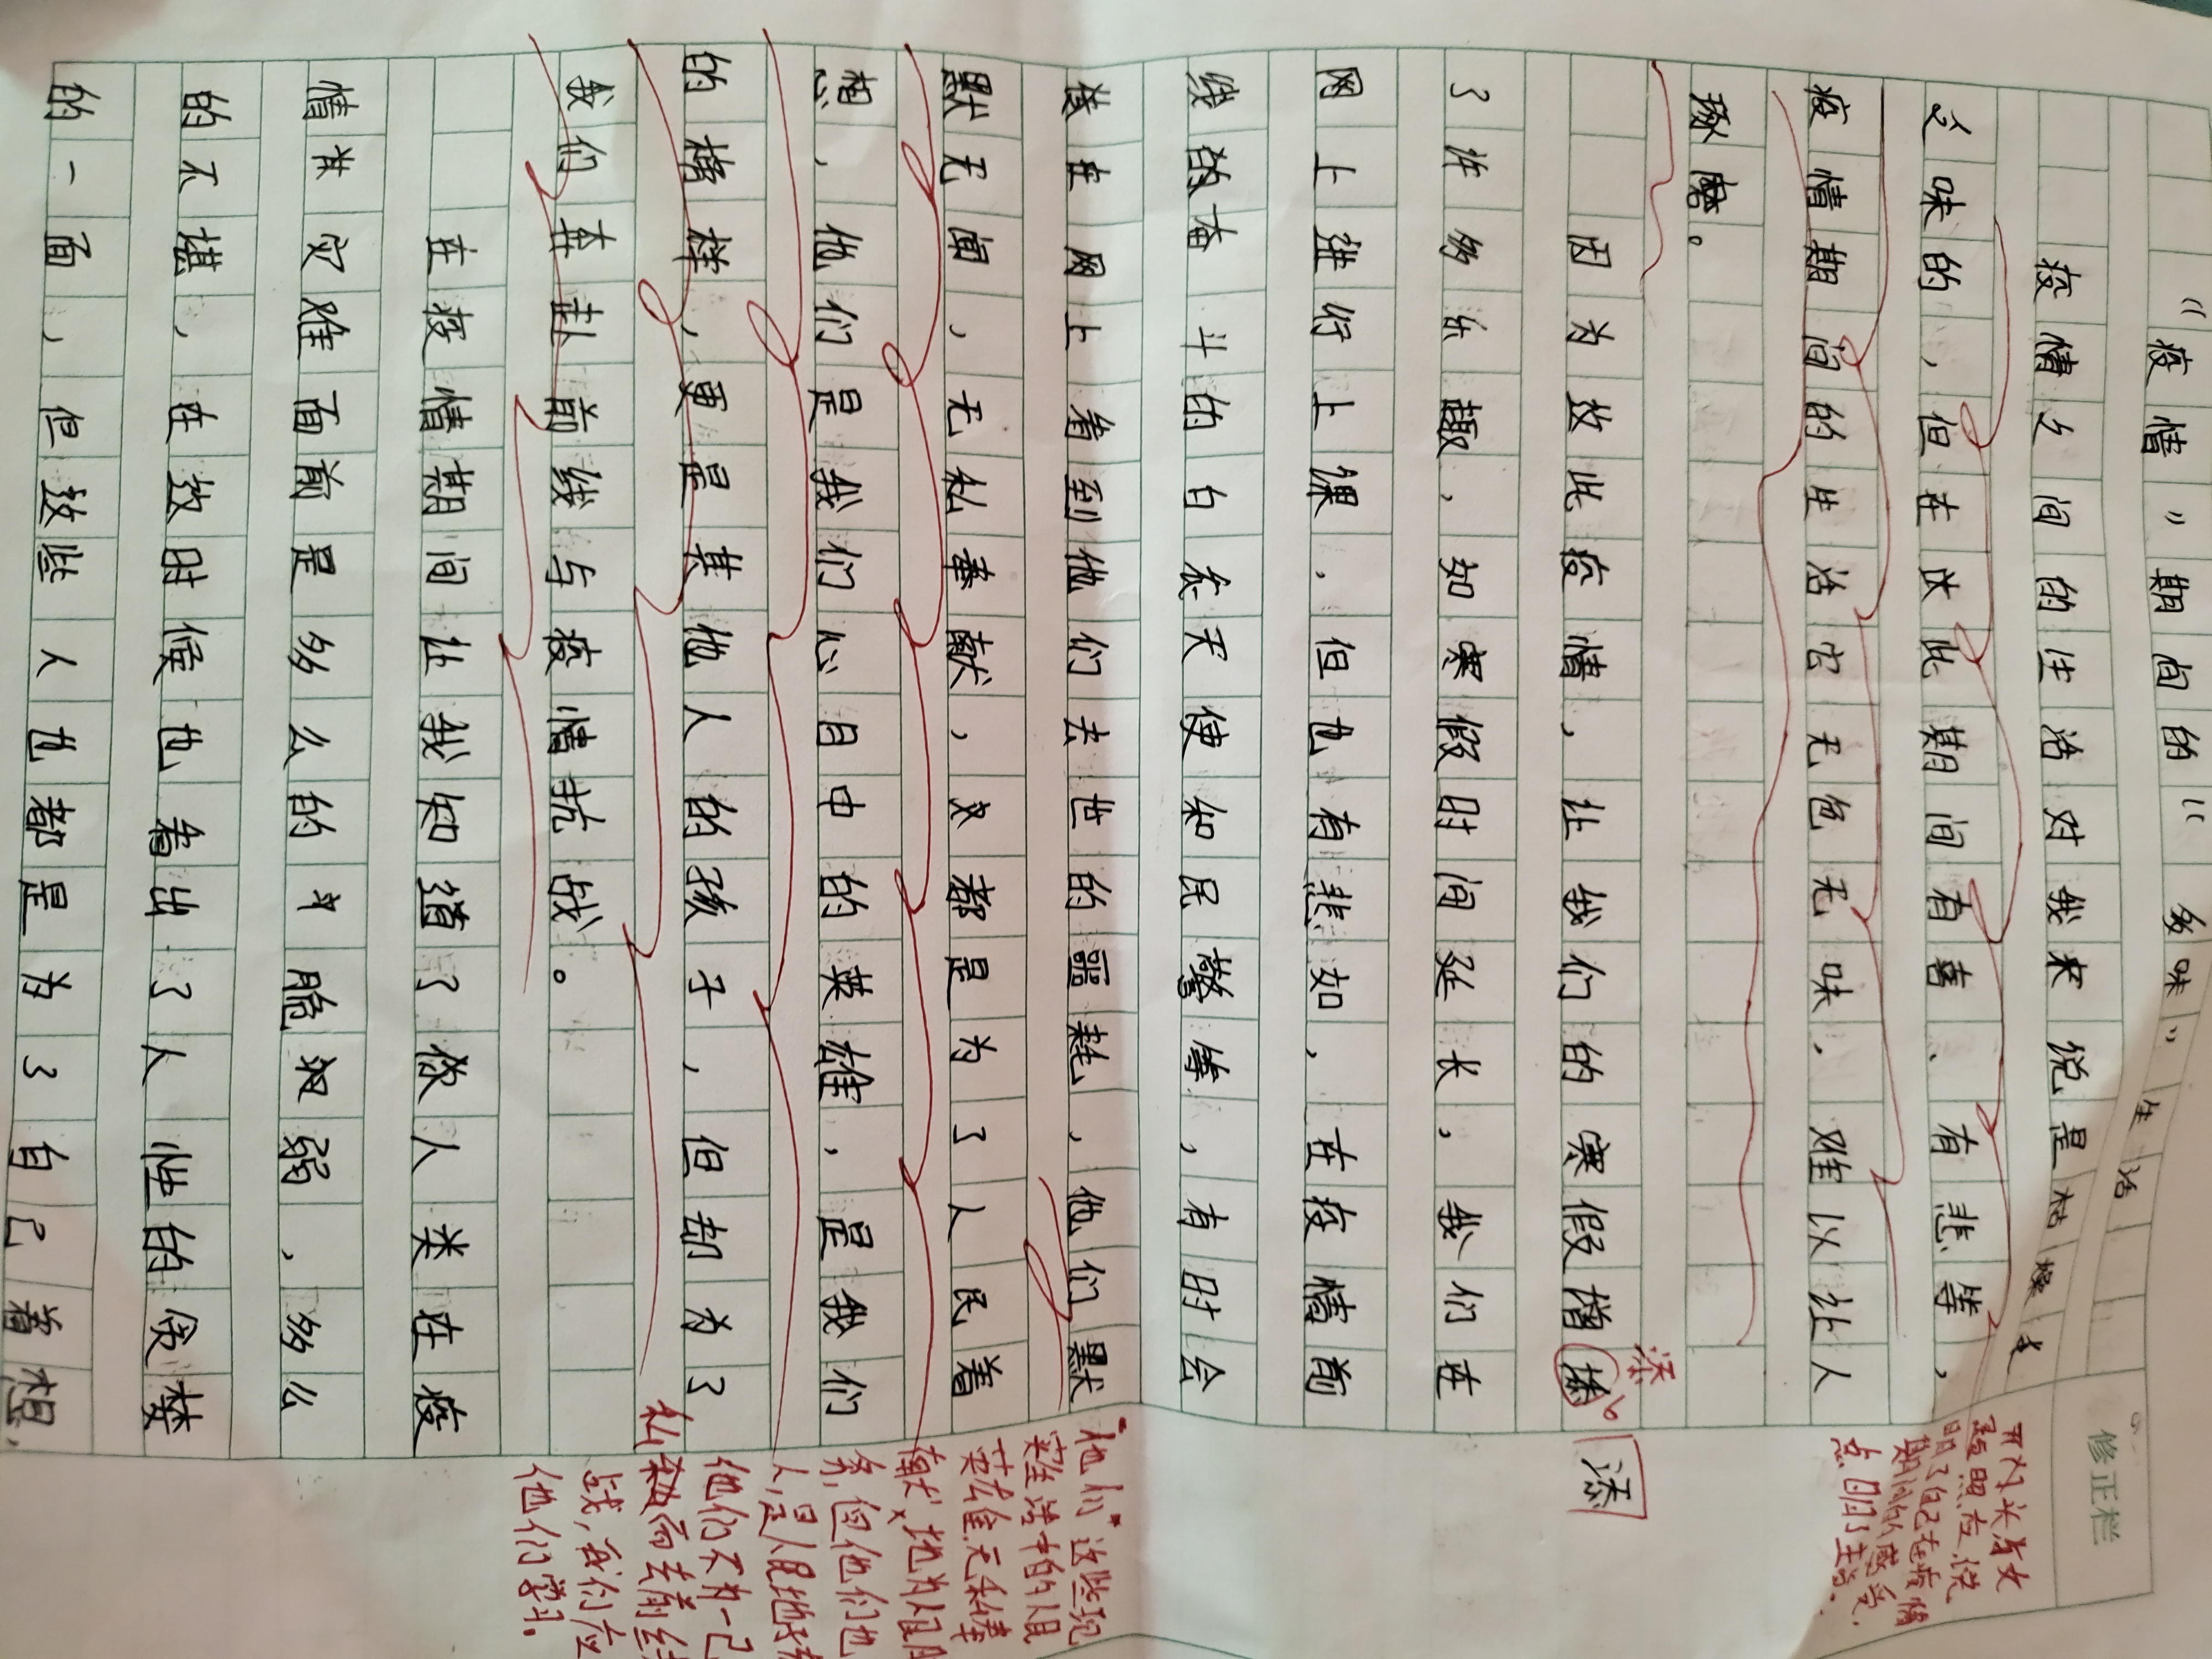 “疫情”期间的“多味”生活
疫情之间的生活对我来说是枯燥
乏味的，但在次此期间有喜、有悲等，
疫情期间的生活它无色无味，难以让人
琢磨。
因为这此疫情，让我们的寒假增添
了许多乐趣，如寒假时间延长，我们在
网上进行上课，但也有悲如，在疫情前
线的奋斗的白衣天使和民警等，有时会
在网上看到他们去世的噩耗，他们默
默无闻，无私奉献，又都是为了人民着
想，他们是我们心目中的英雄，是我们
的榜样，更是其他人的孩子，但却为了
我们奔赴前线与疫情抗战。
在疫情期间让我知道了做人类在疫
情灾难面前是多么的脆弱，多么
的不堪，在这时候也看出了人性的贪婪
的一面，但这些人也都是为了自己着想，
修正栏
开门头与文
题照应，说
明了自己在疫情
期间的感受，
点明主旨。
添
添
“他们”这些现
实生活中的人民
英雄无私奉
献，地为人民服
务，但他们也
是人民地孩
他们不为一己
私而去前线
战，我们应
他们学习。